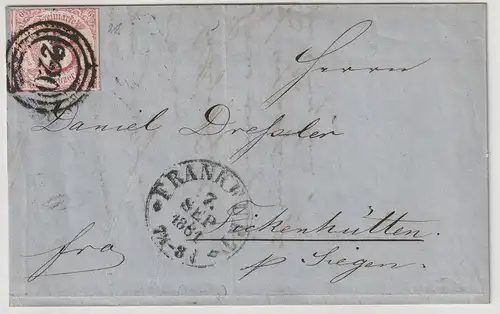 Herrn
Daniel Dressler
FRANKFURT
7.
SEP
1861
Fickenhütten.
fro
p Siegen.